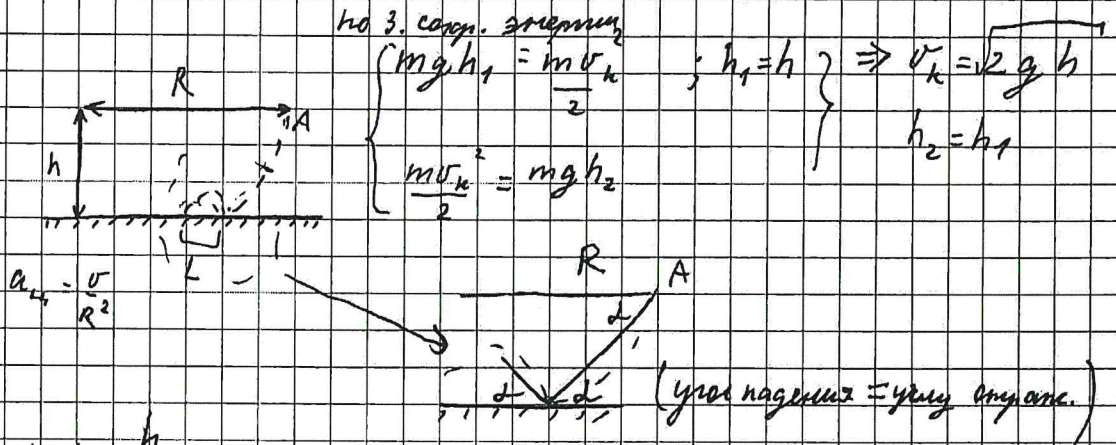 по З. сохр. энергии
mgh₁ = mv_k²/2 ; h₁ = h ⇒ v_k = √2gh
h₂ = h₁
mv_k²/2 = mgh₂
R
A
h
L
a_ц = v/R²
R
A
α
α α
(угол падения = углу отраж.)
h